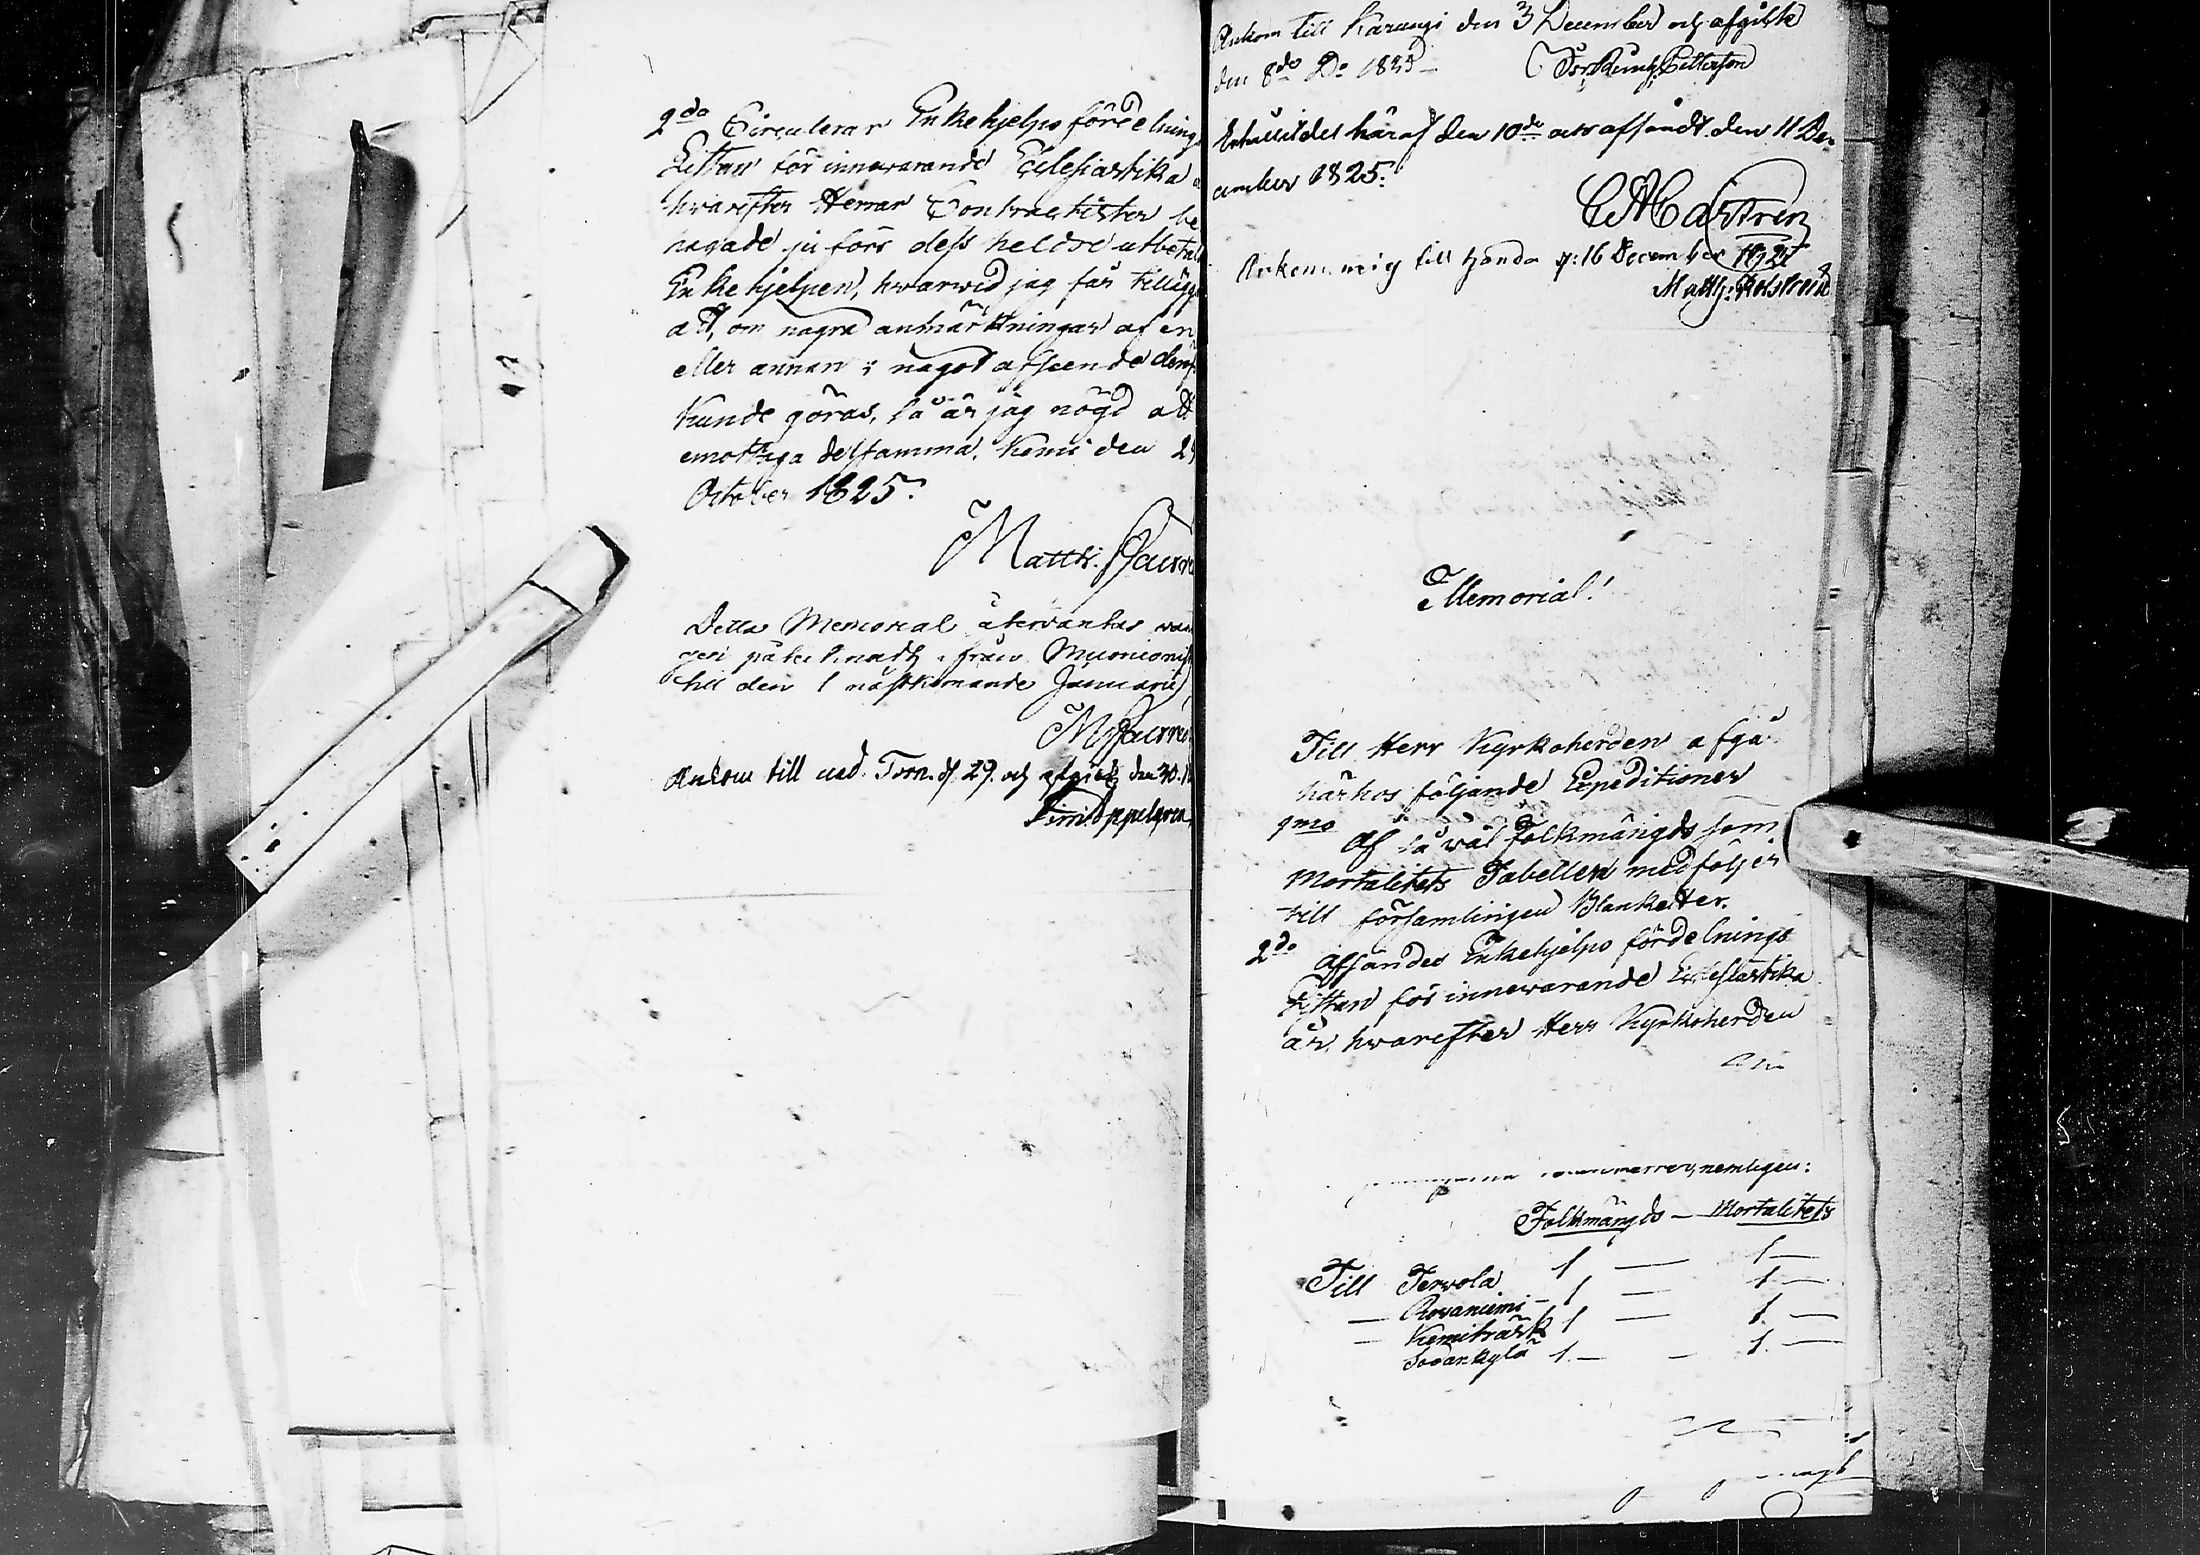 2do Circulerar Enkehjelps fördelnings
Listan för innewarande Ecclesiastika
hwarefter Herrar Contractister be
hagade ju förr dess heldre utbetala
Enkehjelpen, hwarwid jag får tillägga
att, om några anmärkningar af en
eller annan i något afseende
kunde göras, så är jag nögd att
emottaga desamma. Kemi den 24
October 1825.
Matth.
Detta Memorial återväntas
påteknadt, ifrån Muonionis
till den 1 nästkomande Januarii
M
Ankom till ned. Torn. d. 29. och afgick den 30.
Appelgren
Ankom till Karungi den 3 December och afgikk
den 8de Do 1825 –
Petterson
Erhållit del häraf den 10de och afsändt den 11 De-
cember 1825.
Castrén
Ankom mig till handa d: 16 December 1825
Matth:
Memorial!
Till Herr Kyrkoherden afgå
härhos följande Expeditioner
1mo Af så wäl Folkmängds som
Mortalitets Tabellen medföljer
till församlingen Blanketter.
2do Afsändes Enkehjelps fördelnings
Listan för innewarande Ecclesiastika
år, hwarefter Herr Kyrkoherden
nemligen:
Folkmängds – Mortalitets
Till Terwola 1 — 1 —
— Rovaniemi – 1 — 1 —
— Kemiträsk 1 — 1 —
Sodankylä 1. — – 1. —